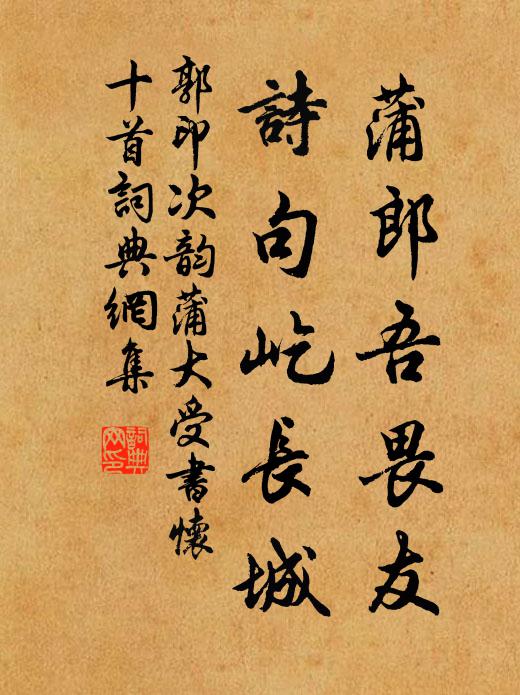 蒲郎吾畏友
詩句屹長城
郭印次韵蒲大受書懷
十首詞典網集
詞典
网印